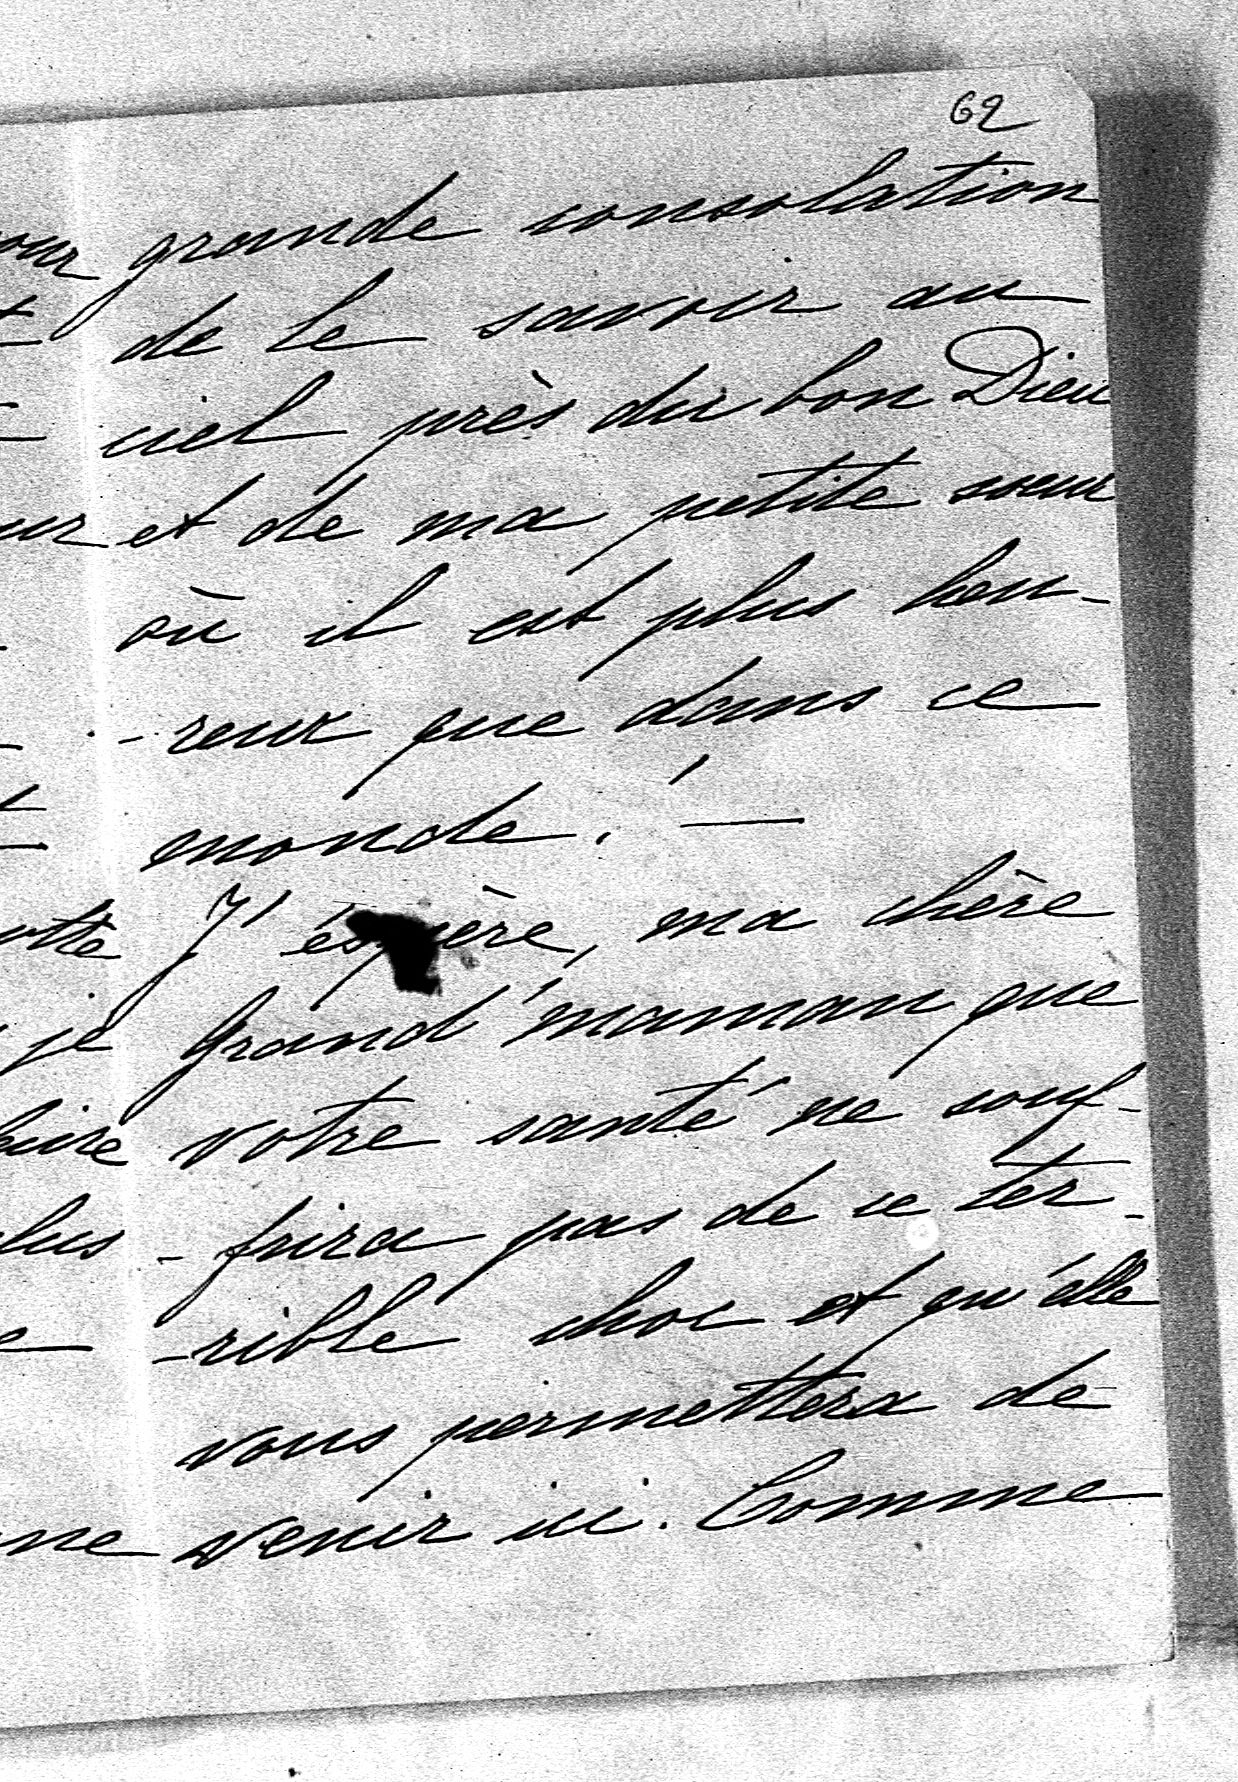 62
grande consolation
de le savoir au
ciel près du bon Dieu
et de ma petite soeur
où il est plus heu-
-reux que dans ce
monde. —
J'éspère, ma chère
Grand'maman que
votre santé ne souf-
-frira pas de ce ter-
-rible choc et qu'elle
vous permettera de
venir ici. Comme